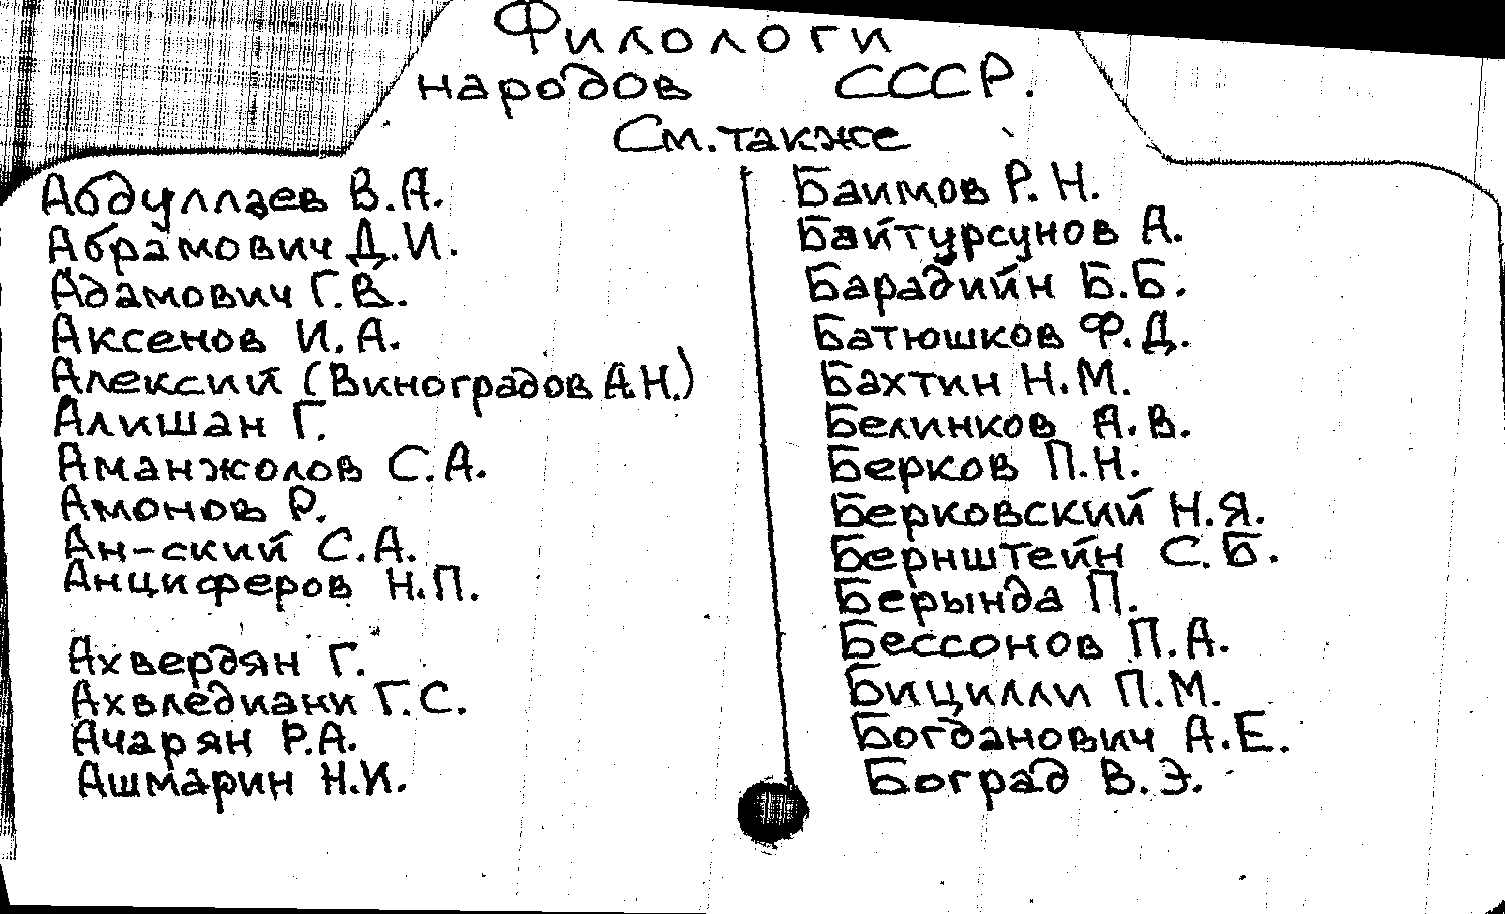 Филологи
народов СССР.
См. также
Абдуллаев В.А.
Абрамович Д.И.
Адамович Г.В.
Аксенов И.А.
Алексий (Виноградов А.Н.)
Алишан Г.
Аманжолов С.А.
Амонов Р.
Ан-ский С.А.
Анциферов Н.П.
Ахвердян Г.
Ахвледиани Г.С.
Ачарян Р.А.
Ашмарин Н.И.
Баимов Р.Н.
Байтурсунов А.
Барадийн Б.Б.
Батюшков Ф.Д.
Бахтин Н.М.
Белинков А.В.
Берков П.Н.
Берковский Н.Я.
Бернштейн С.Б.
Берында П.
Бессонов П.А.
Бицилли П.М.
Богданович А.Е.
Боград В.Э.